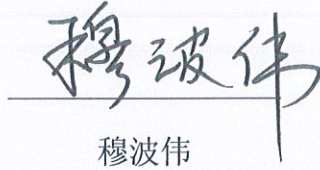 穆波伟
穆波伟